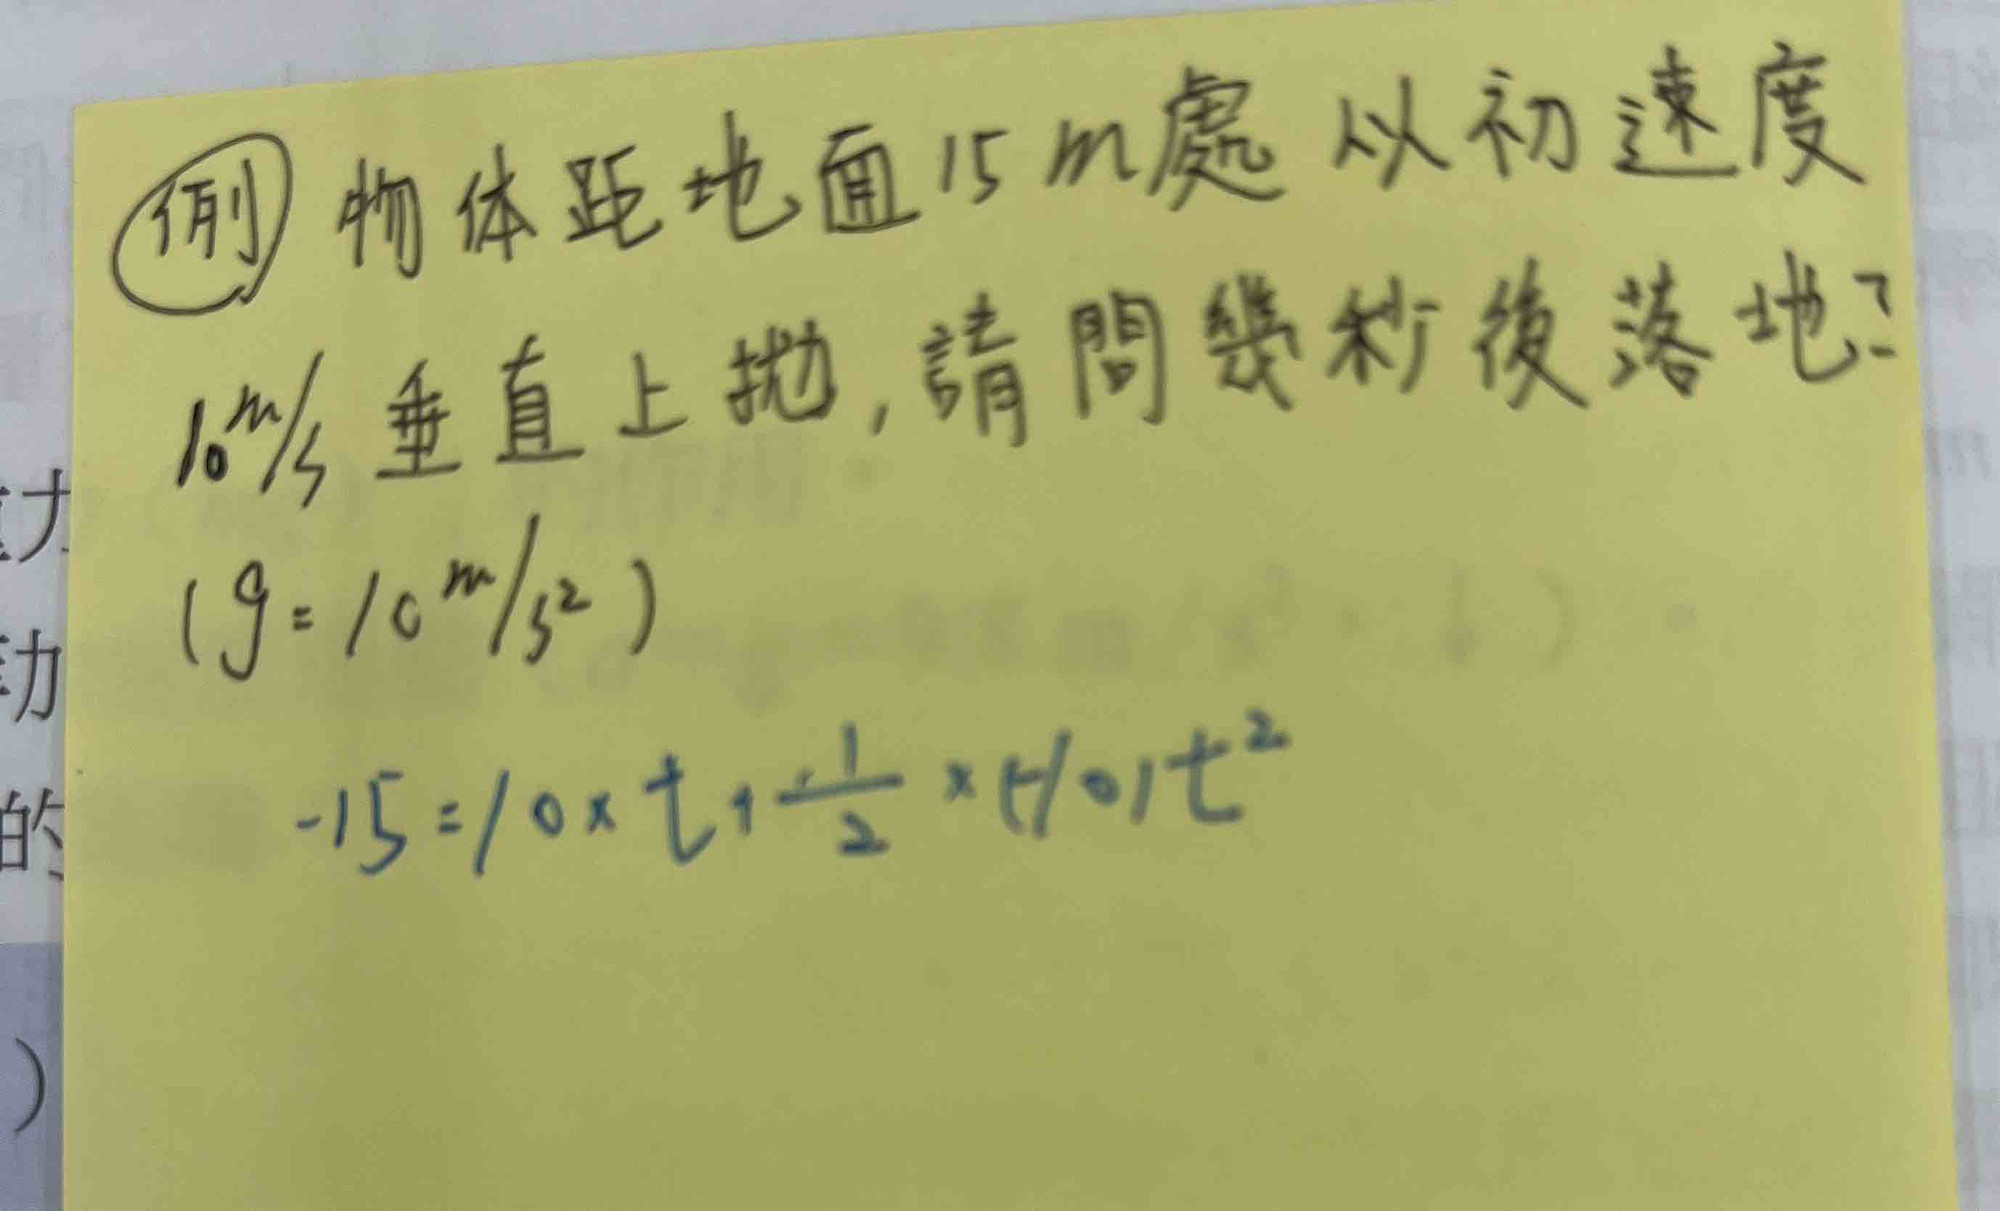 例 物体距地面15m處以初速度
10m/s垂直上拋,請問幾秒後落地?
(g=10m/s²)
-15=10×t+1/2×(-10)t²
力
的
)